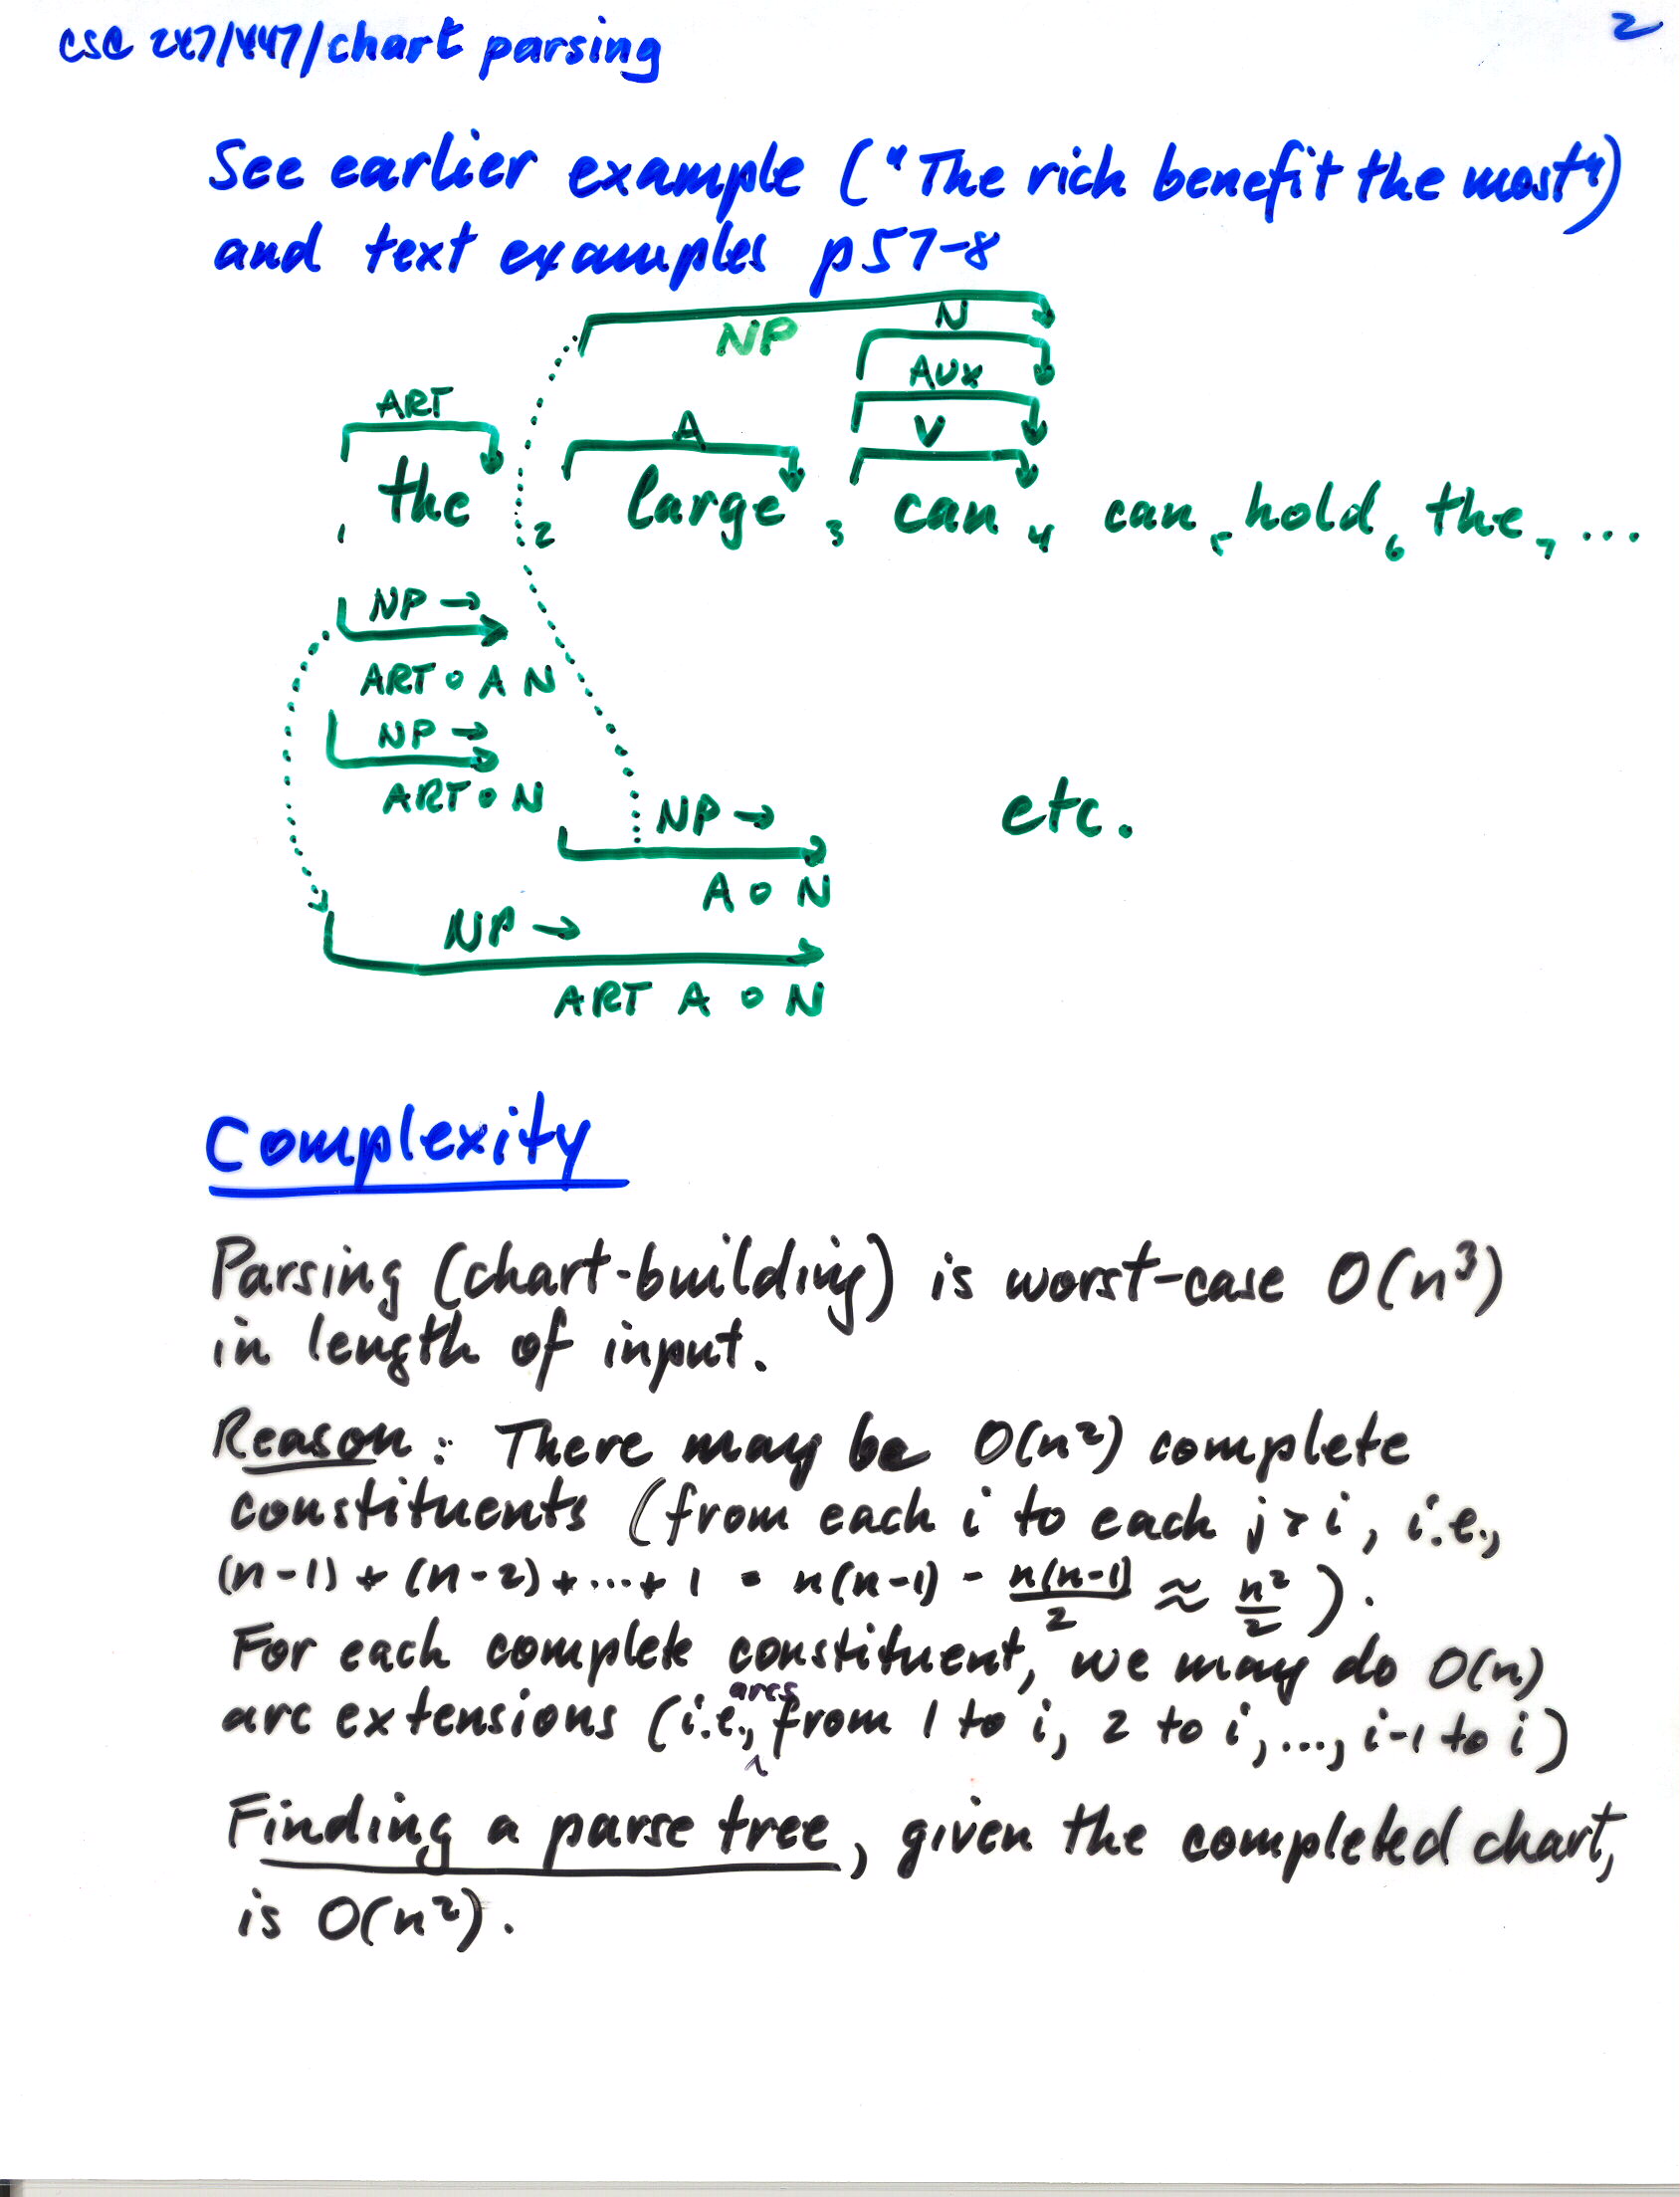 csc 247/447/chart parsing
2
See earlier example ("The rich benefit the most")
and text examples p57-8
NP
N
AUX
ART
A
V
1 the 2 large 3 can 4 can 5 hold 6 the 7 ...
NP →
ART o A N
NP →
ART o N
NP →
etc.
A o N
NP →
ART A o N
Complexity
Parsing (chart-building) is worst-case O(n³)
in length of input.
Reason: There may be O(n²) complete
constituents (from each i to each j > i, i.e.,
(n-1) + (n-2) + ... + 1 = n(n-1) - n(n-1)/2 ≈ n²/2 ).
For each complete constituent, we may do O(n)
arc extensions (i.e., arcs from 1 to i, 2 to i, ..., i-1 to i)
Finding a parse tree, given the completed chart,
is O(n²).